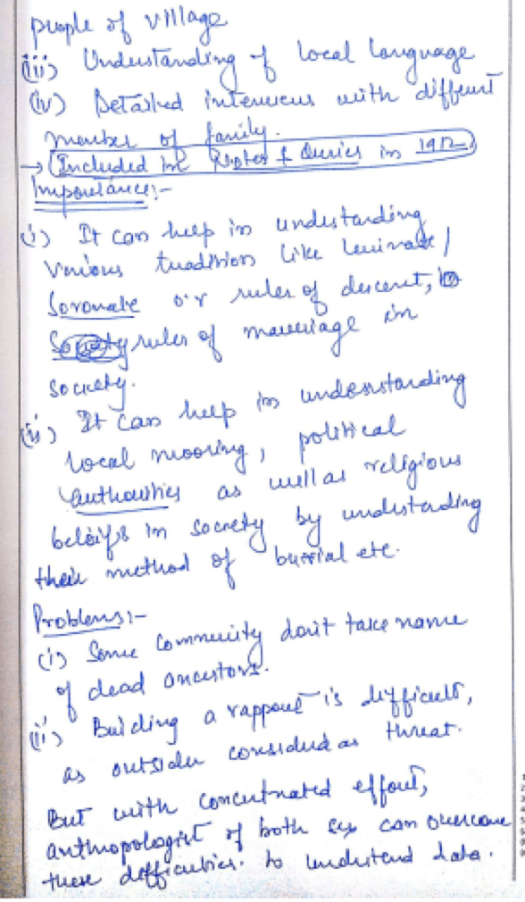 people of village
(iii) Understanding of local language
(iv) Detailed interviews with different
member of family.
→ Included in Notes & Queries in 1912
Importance:-
(i) It can help in understanding
various tradition like levirate /
Soronate or rules of descent,
Society rules of marriage in
society.
(ii) It can help in understanding
local mooring, political
authorities as well as religious
beleifs in society by understanding
their method of burrial etc.
Problems:-
(i) Some Community don't take name
of dead ancestors.
(ii) Building a rappout is difficult,
as outsider considered as threat.
But with concentrated effout,
anthropologist of both sex can overcome
these difficulties. to understand data.